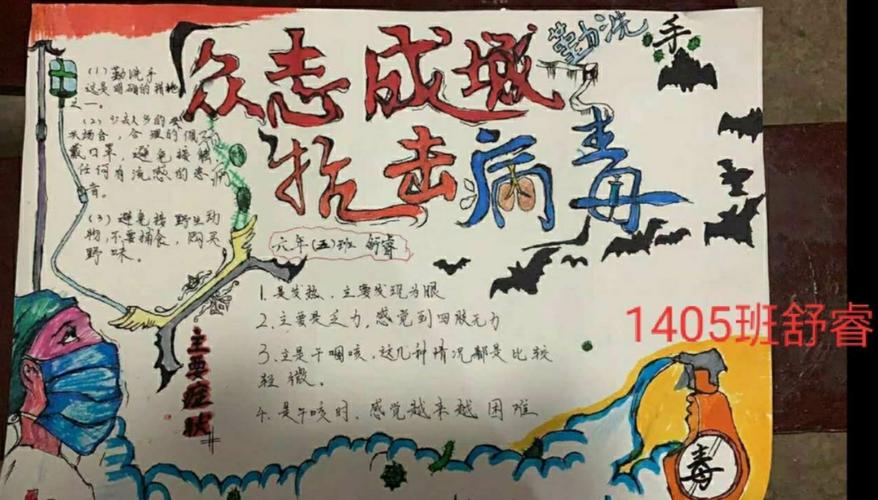 众志成城
抗击病毒
勤洗手
(1)勤洗手
这是明确的措施
之一。
(2)少去人多的公
共场合,合理的
戴口罩,避免接触
任何有流感的患病
者。
(3)避免接野生动
物,不要捕食,购买
野味。
六年(五)班 舒睿
主要症状
1.是发热、主要发现为眼
2.主要是乏力,感觉到四肢无力
3.主是干咽咳,这几种情况都是比较
轻微。
4.是午咳时,感觉越来越困难
1405班舒睿
毒